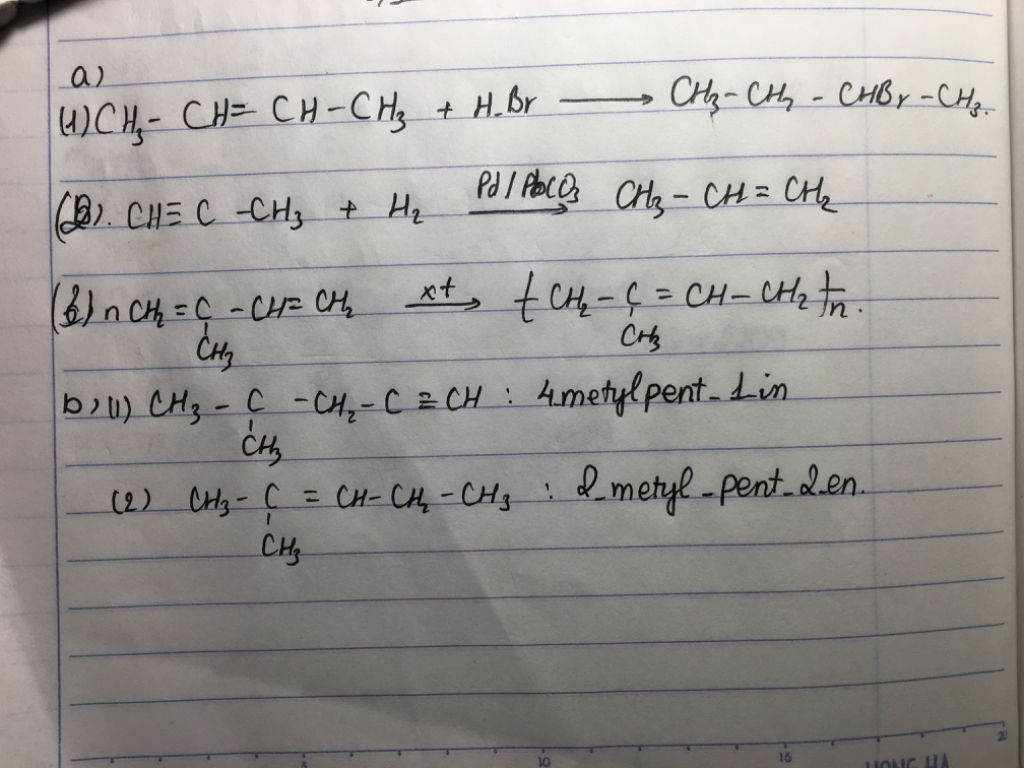 a)
(1) CH₃ - CH = CH - CH₃ + H-Br ⟶ CH₃ - CH₂ - CHBr - CH₃.
(2). CH ≡ C - CH₃ + H₂ Pd/PbCO₃ ⟶ CH₃ - CH = CH₂
(3) nCH₂ = C - CH = CH₂ xt ⟶ { CH₂ - C = CH - CH₂ }n.
CH₃ CH₃
b) (1) CH₃ - C - CH₂ - C ≡ CH : 4metylpent-1in
CH₃
(2) CH₃ - C = CH - CH₂ - CH₃ : 2-metyl-pent-2-en.
CH₃
5 10 15 20
HONG HA